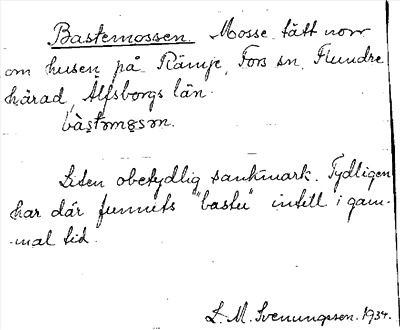 Bastemossen Mosse tätt norr
om husen på Rämje, Fors sn, Flundre
härad, Älfsborgs län.
bàstəmɔsən.
Liten obetydlig sankmark. Tydligen
har där funnits "bastu" intill i gam-
-mal tid.
L. M. Svenungsson. 1934.